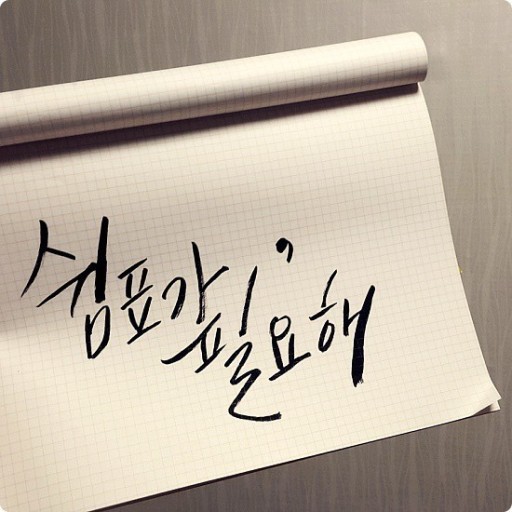 쉼표가, 필요해